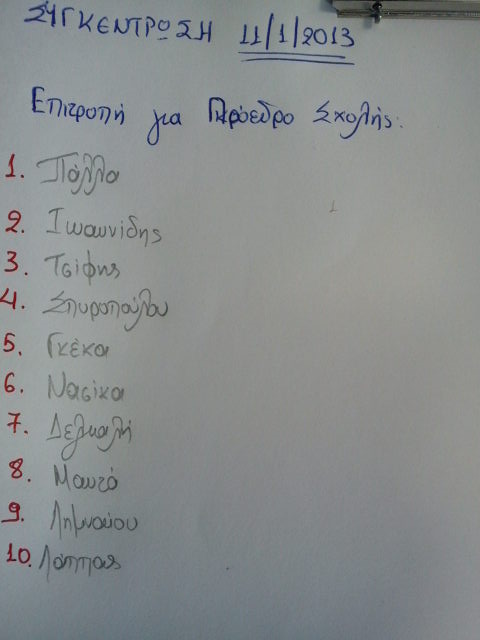 ΣΥΓΚΕΝΤΡΩΣΗ 11/1/2013
Επιτροπή για Πρόεδρο Σχολής:
1. Πάλλα
2. Ιωαννίδης
3. Τσίφης
4. Σπυροπούλου
5. Γκέκα
6. Νασίκα
7.
8.
9. Λημναίου
10. Λάππας